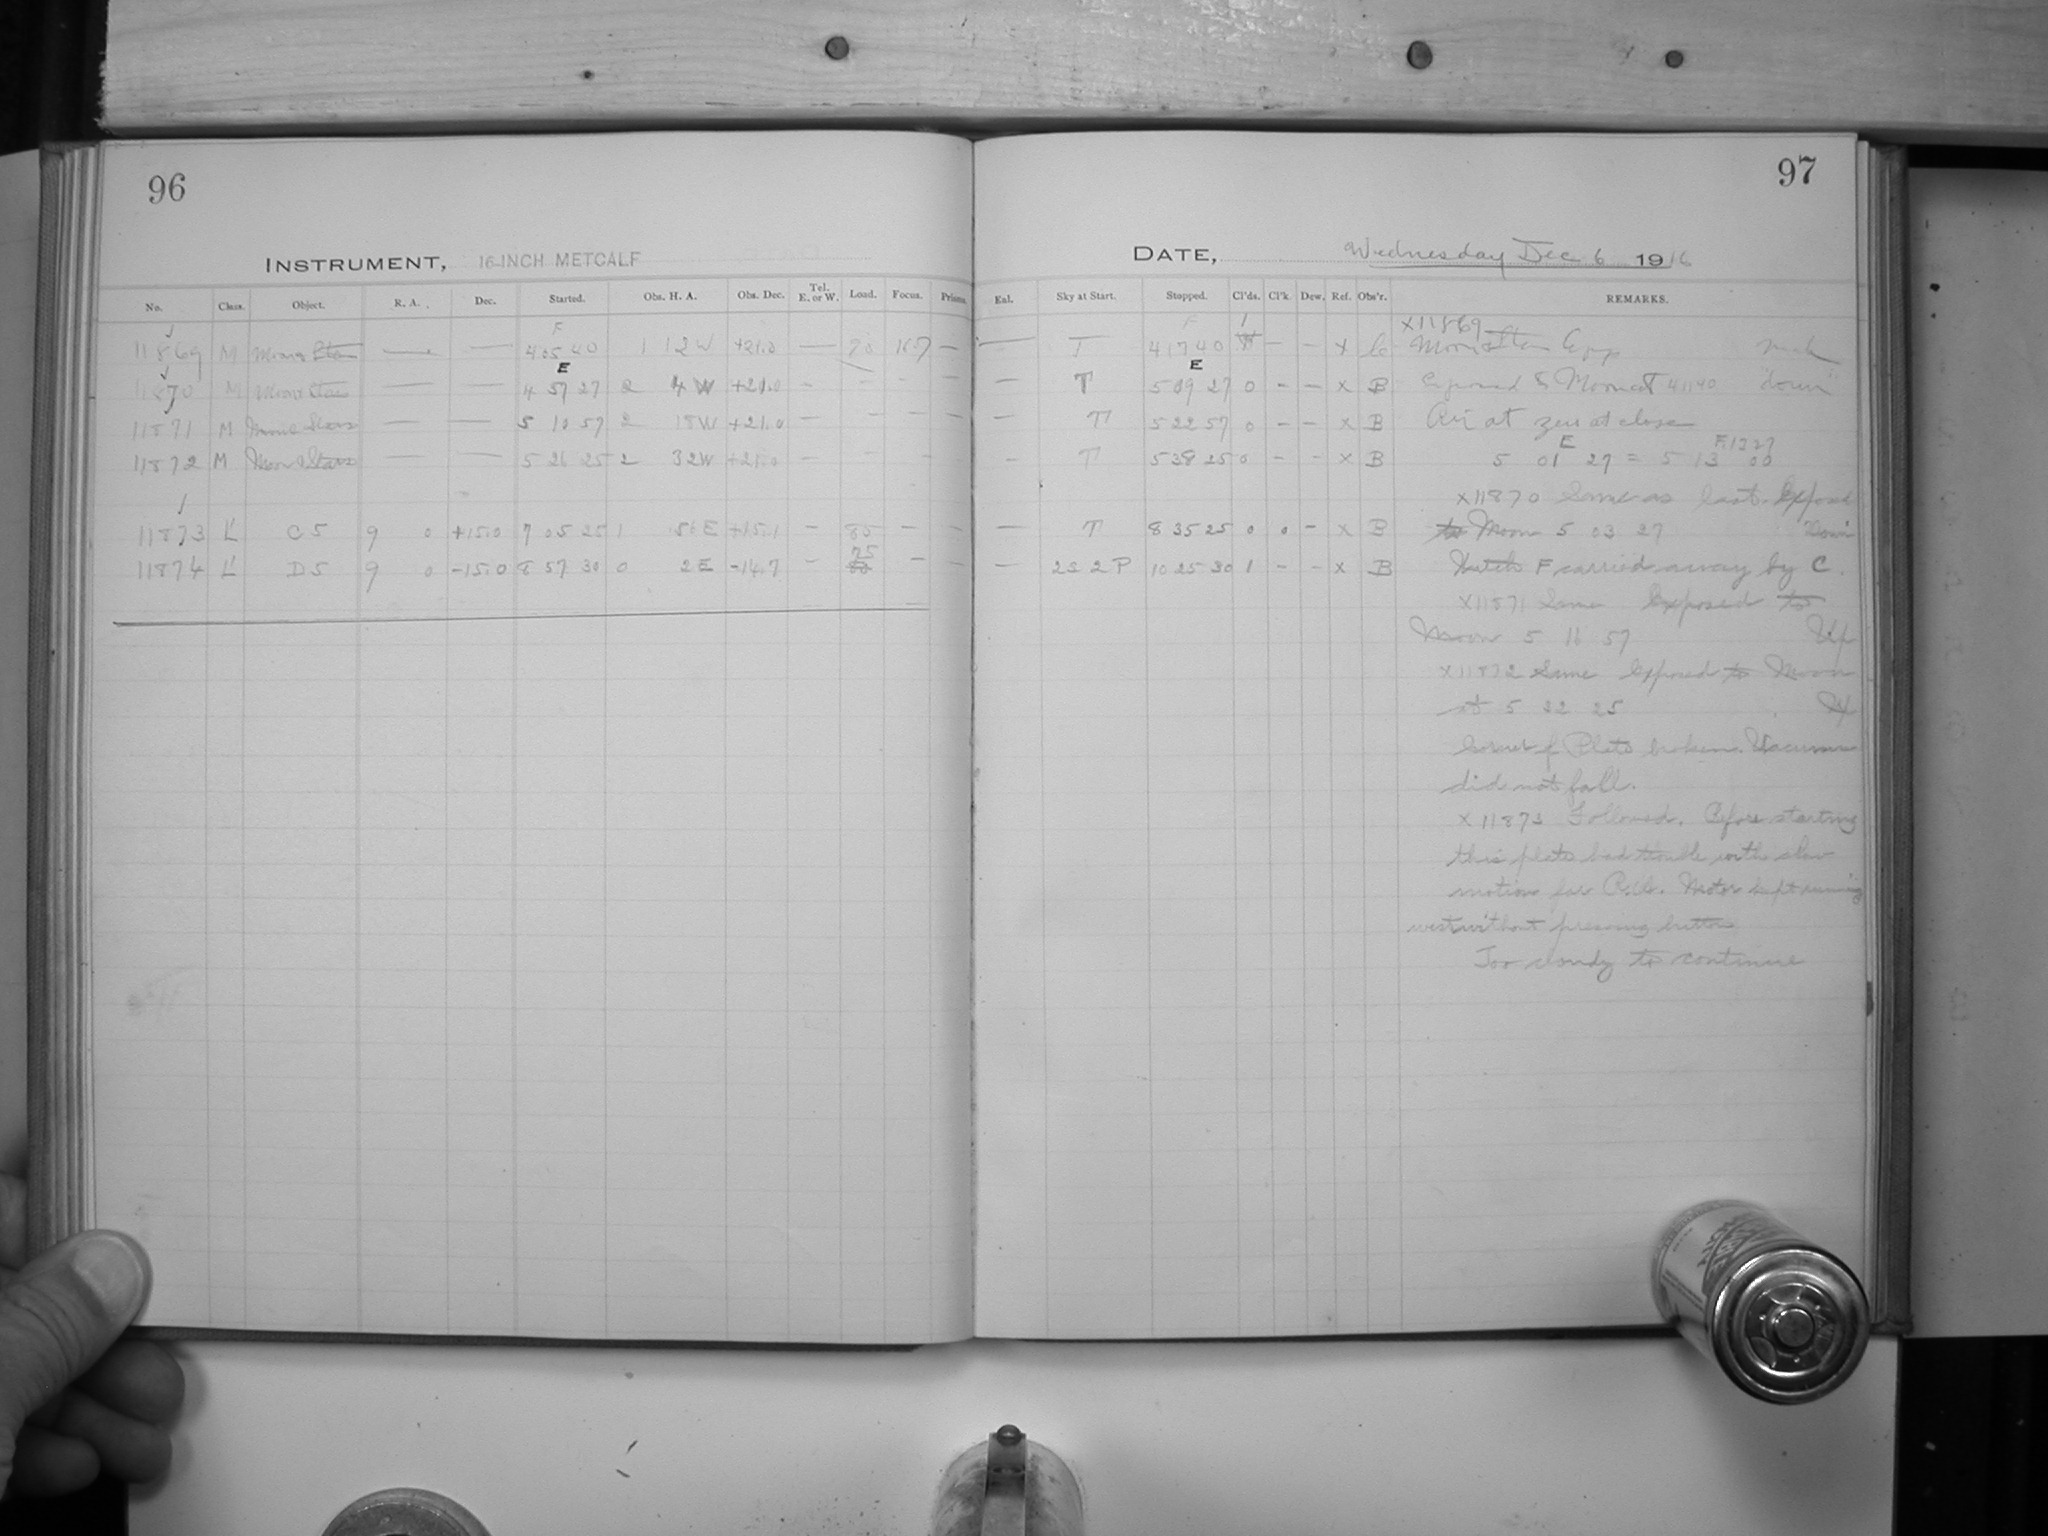 96
97
INSTRUMENT, 16-INCH METCALF
DATE, Wednesday Dec 6 1916
No. Class. Object. R. A. Dec. Started. Obs. H. A. Obs. Dec. Tel. E. or W. Load. Focus. Prisms. Eal. Sky at Start. Stopped. Cl'ds. Cl'k. Dew. Ref. Obs'r. REMARKS.
11869 M Moon & Stars — — F 4 05 40 1 12 W +21.0 — 90 16.7 — — T F 4 17 40 1 — – x C x11869
Moon & Stars
11870 M Moon & Stars — — E 4 57 27 2 4 W +21.0 – – – – — T E 5 09 27 0 – – x B Exposed to Moon at 4 11 40 "down"
11871 M Moon & Stars — — 5 10 57 2 18 W +21.0 — – – – — T 5 22 57 0 – – x B Air at zero at close
11872 M Moon & Stars — — 5 26 25 2 32 W +21.0 – – – – – T 5 38 25 0 – – x B 5 01 E 27 = 5 13 00 F. 13 27
x11870 Same as last. Exposed
11873 L' C5 9 0 +15.0 7 05 25 1 56 E +15.1 – 80 – – — T 8 35 25 0 0 – x B to Moon 5 03 27 Down
11874 L' D5 9 0 –15.0 8 57 30 0 2 E –14.7 – 75 – – — 2S 2P 10 25 30 1 – – x B F carried away by C.
x11871 Same Exposed to
Moon 5 16 57 Up
x11872 Same Exposed to Moon
at 5 32 25 Up
Corner of Plate broken. Vacuum
did not fall.
x11873 Followed. Before starting
this plate had trouble with slow
motion for R.A. Motor kept running
west without pressing button
Too cloudy to continue